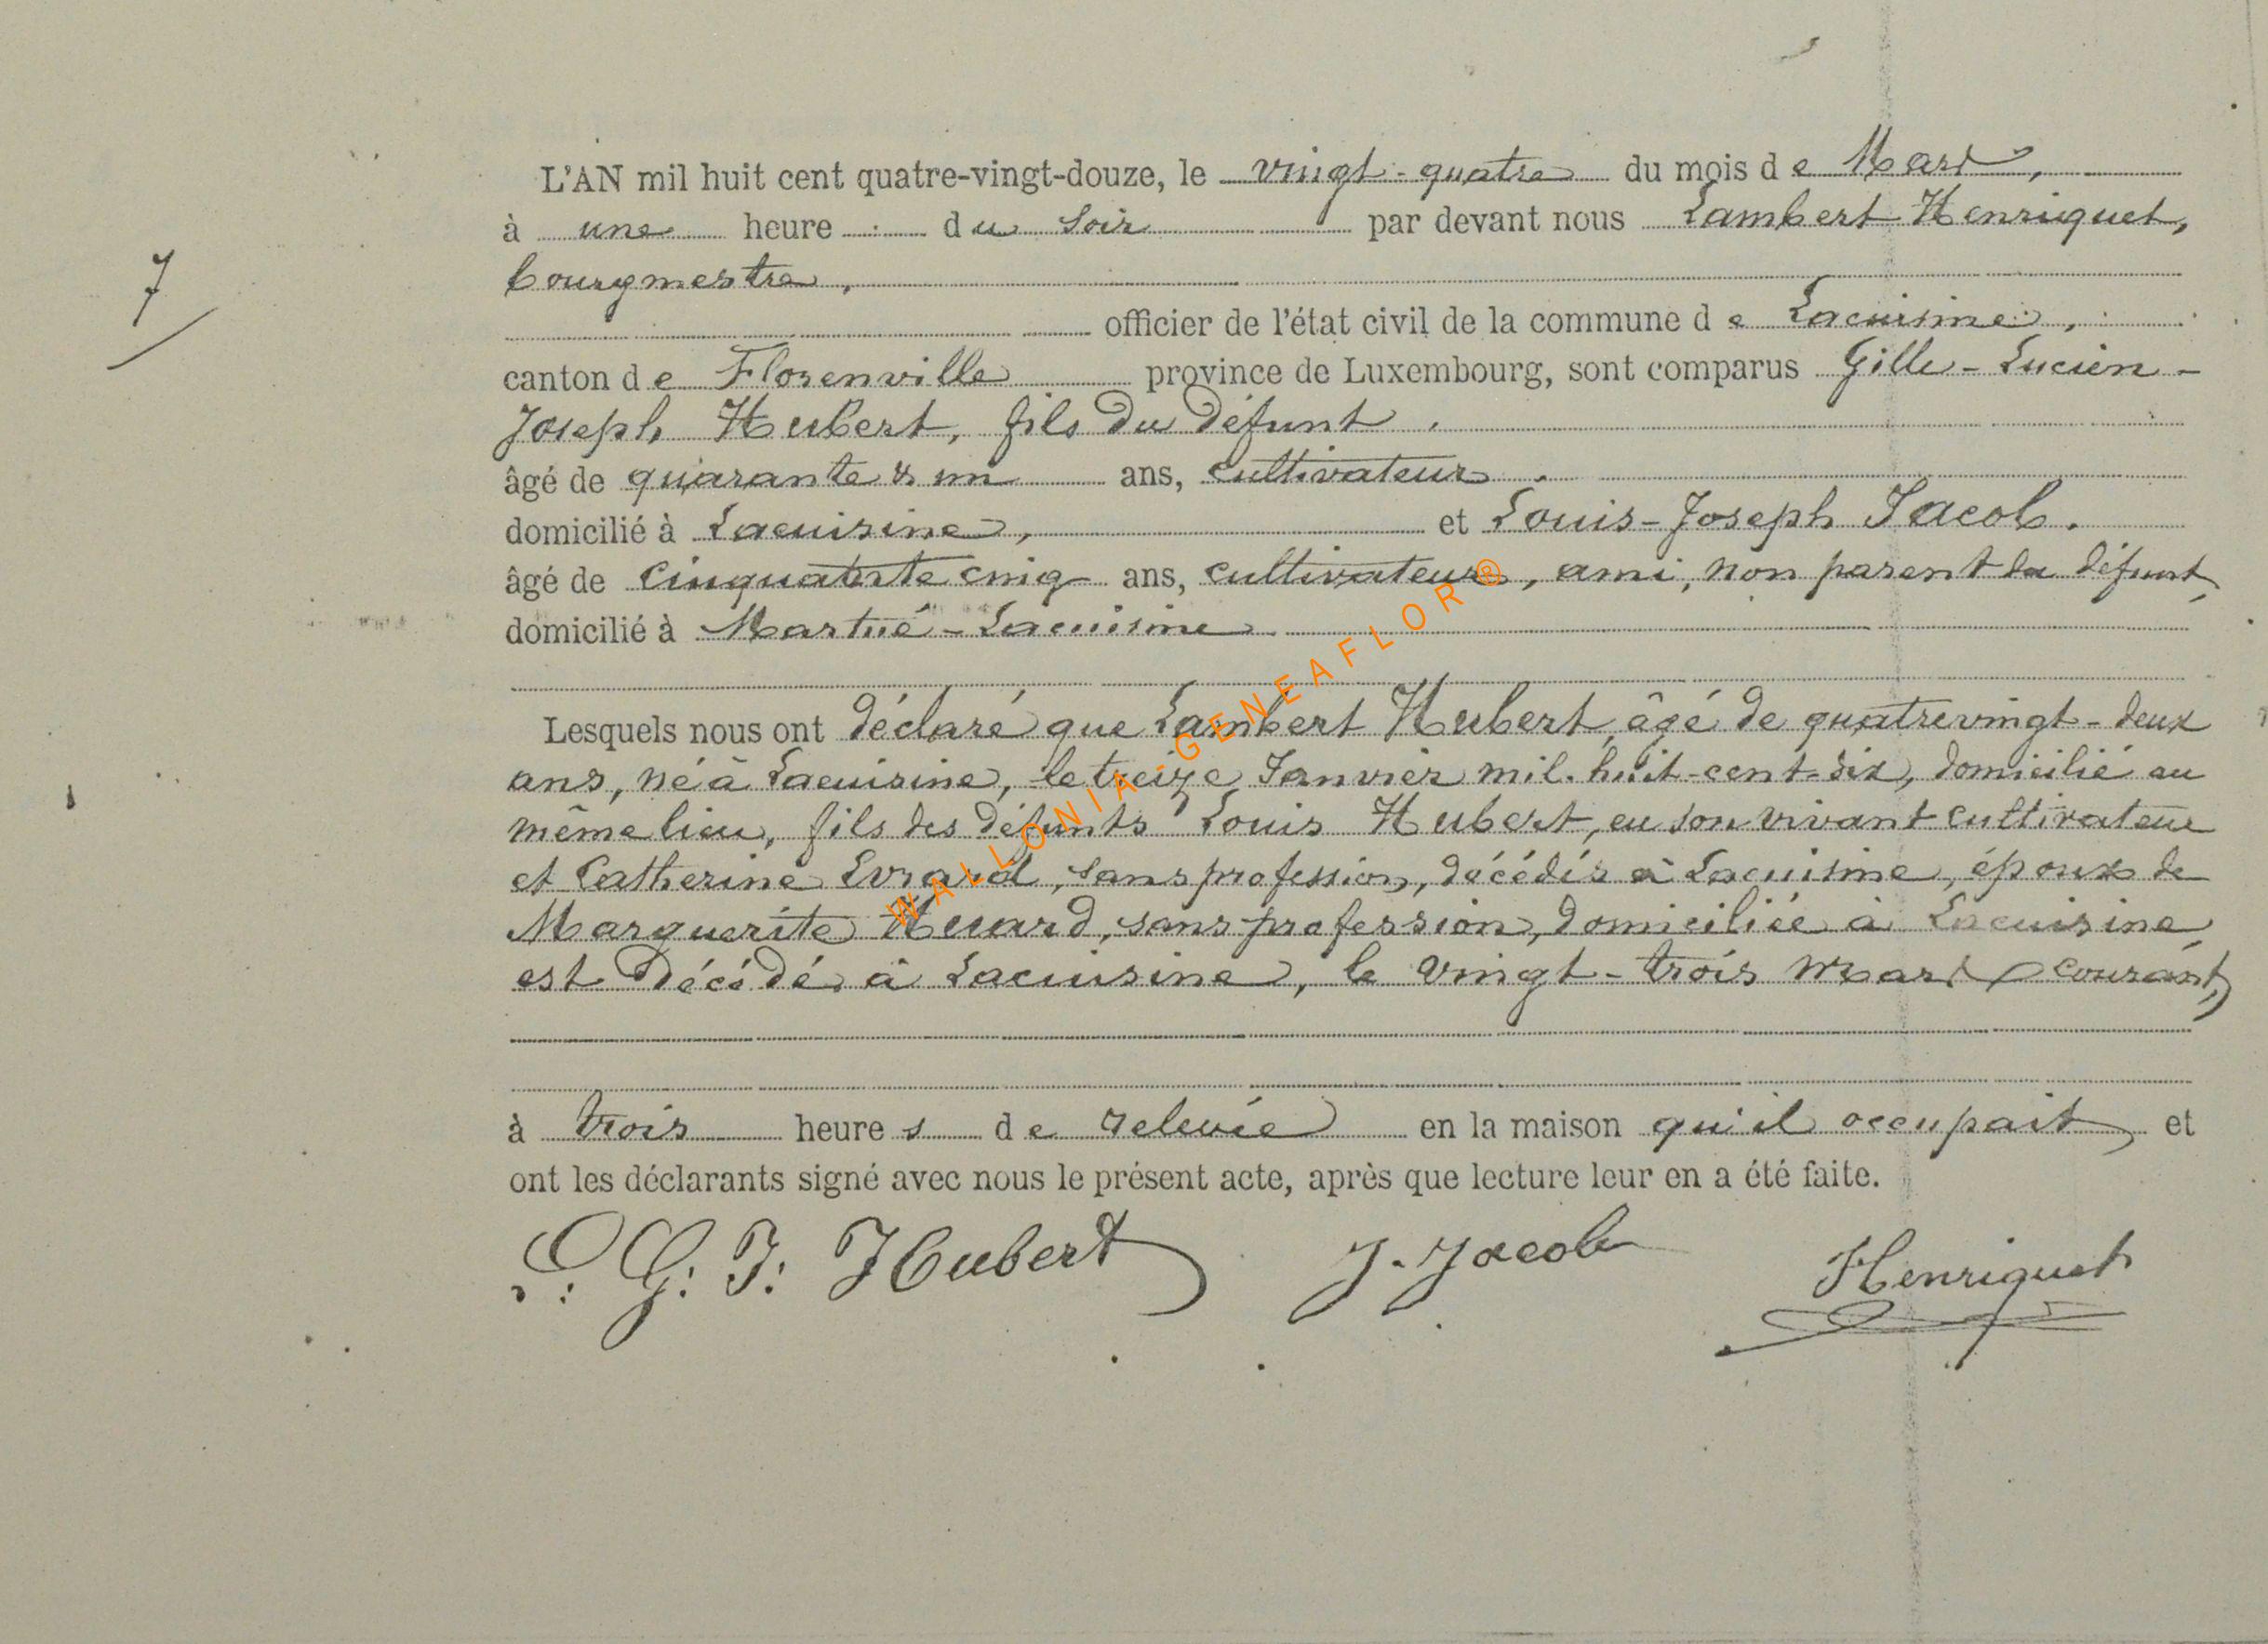 L'AN mil huit cent quatre-vingt-douze, le vingt-quatre du mois de Mars,
à une heure du soir par devant nous Lambert Henriquet,
bourgmestre,
7
officier de l'état civil de la commune de Lacuisine,
canton de Florenville province de Luxembourg, sont comparus Gille-Lucien-
Joseph Hubert, fils du défunt,
âgé de quarante & un ans, cultivateur
domicilié à Lacuisine, et Louis-Joseph Jacob.
âgé de cinquante cinq ans, cultivateur, ami, non parent du défunt,
domicilié à Martué-Lacuisine
Lesquels nous ont déclaré que Lambert Hubert, âgé de quatrevingt-deux
ans, né à Lacuisine, le treize Janvier mil-huit-cent-dix, domicilié au
même lieu, fils des défunts Louis Hubert, en son vivant cultivateur
et Catherine Evrard, sans profession, décédés à Lacuisine, époux de
Marguerite Huard, sans profession, domiciliée à Lacuisine,
est décédé à Lacuisine, le vingt-trois mars courant,
à trois heures de relevée en la maison qu'il occupait, et
ont les déclarants signé avec nous le présent acte, après que lecture leur en a été faite.
L: G: J: Hubert J. Jacob Henriquet
WALLONIA-GENEAFLOR®